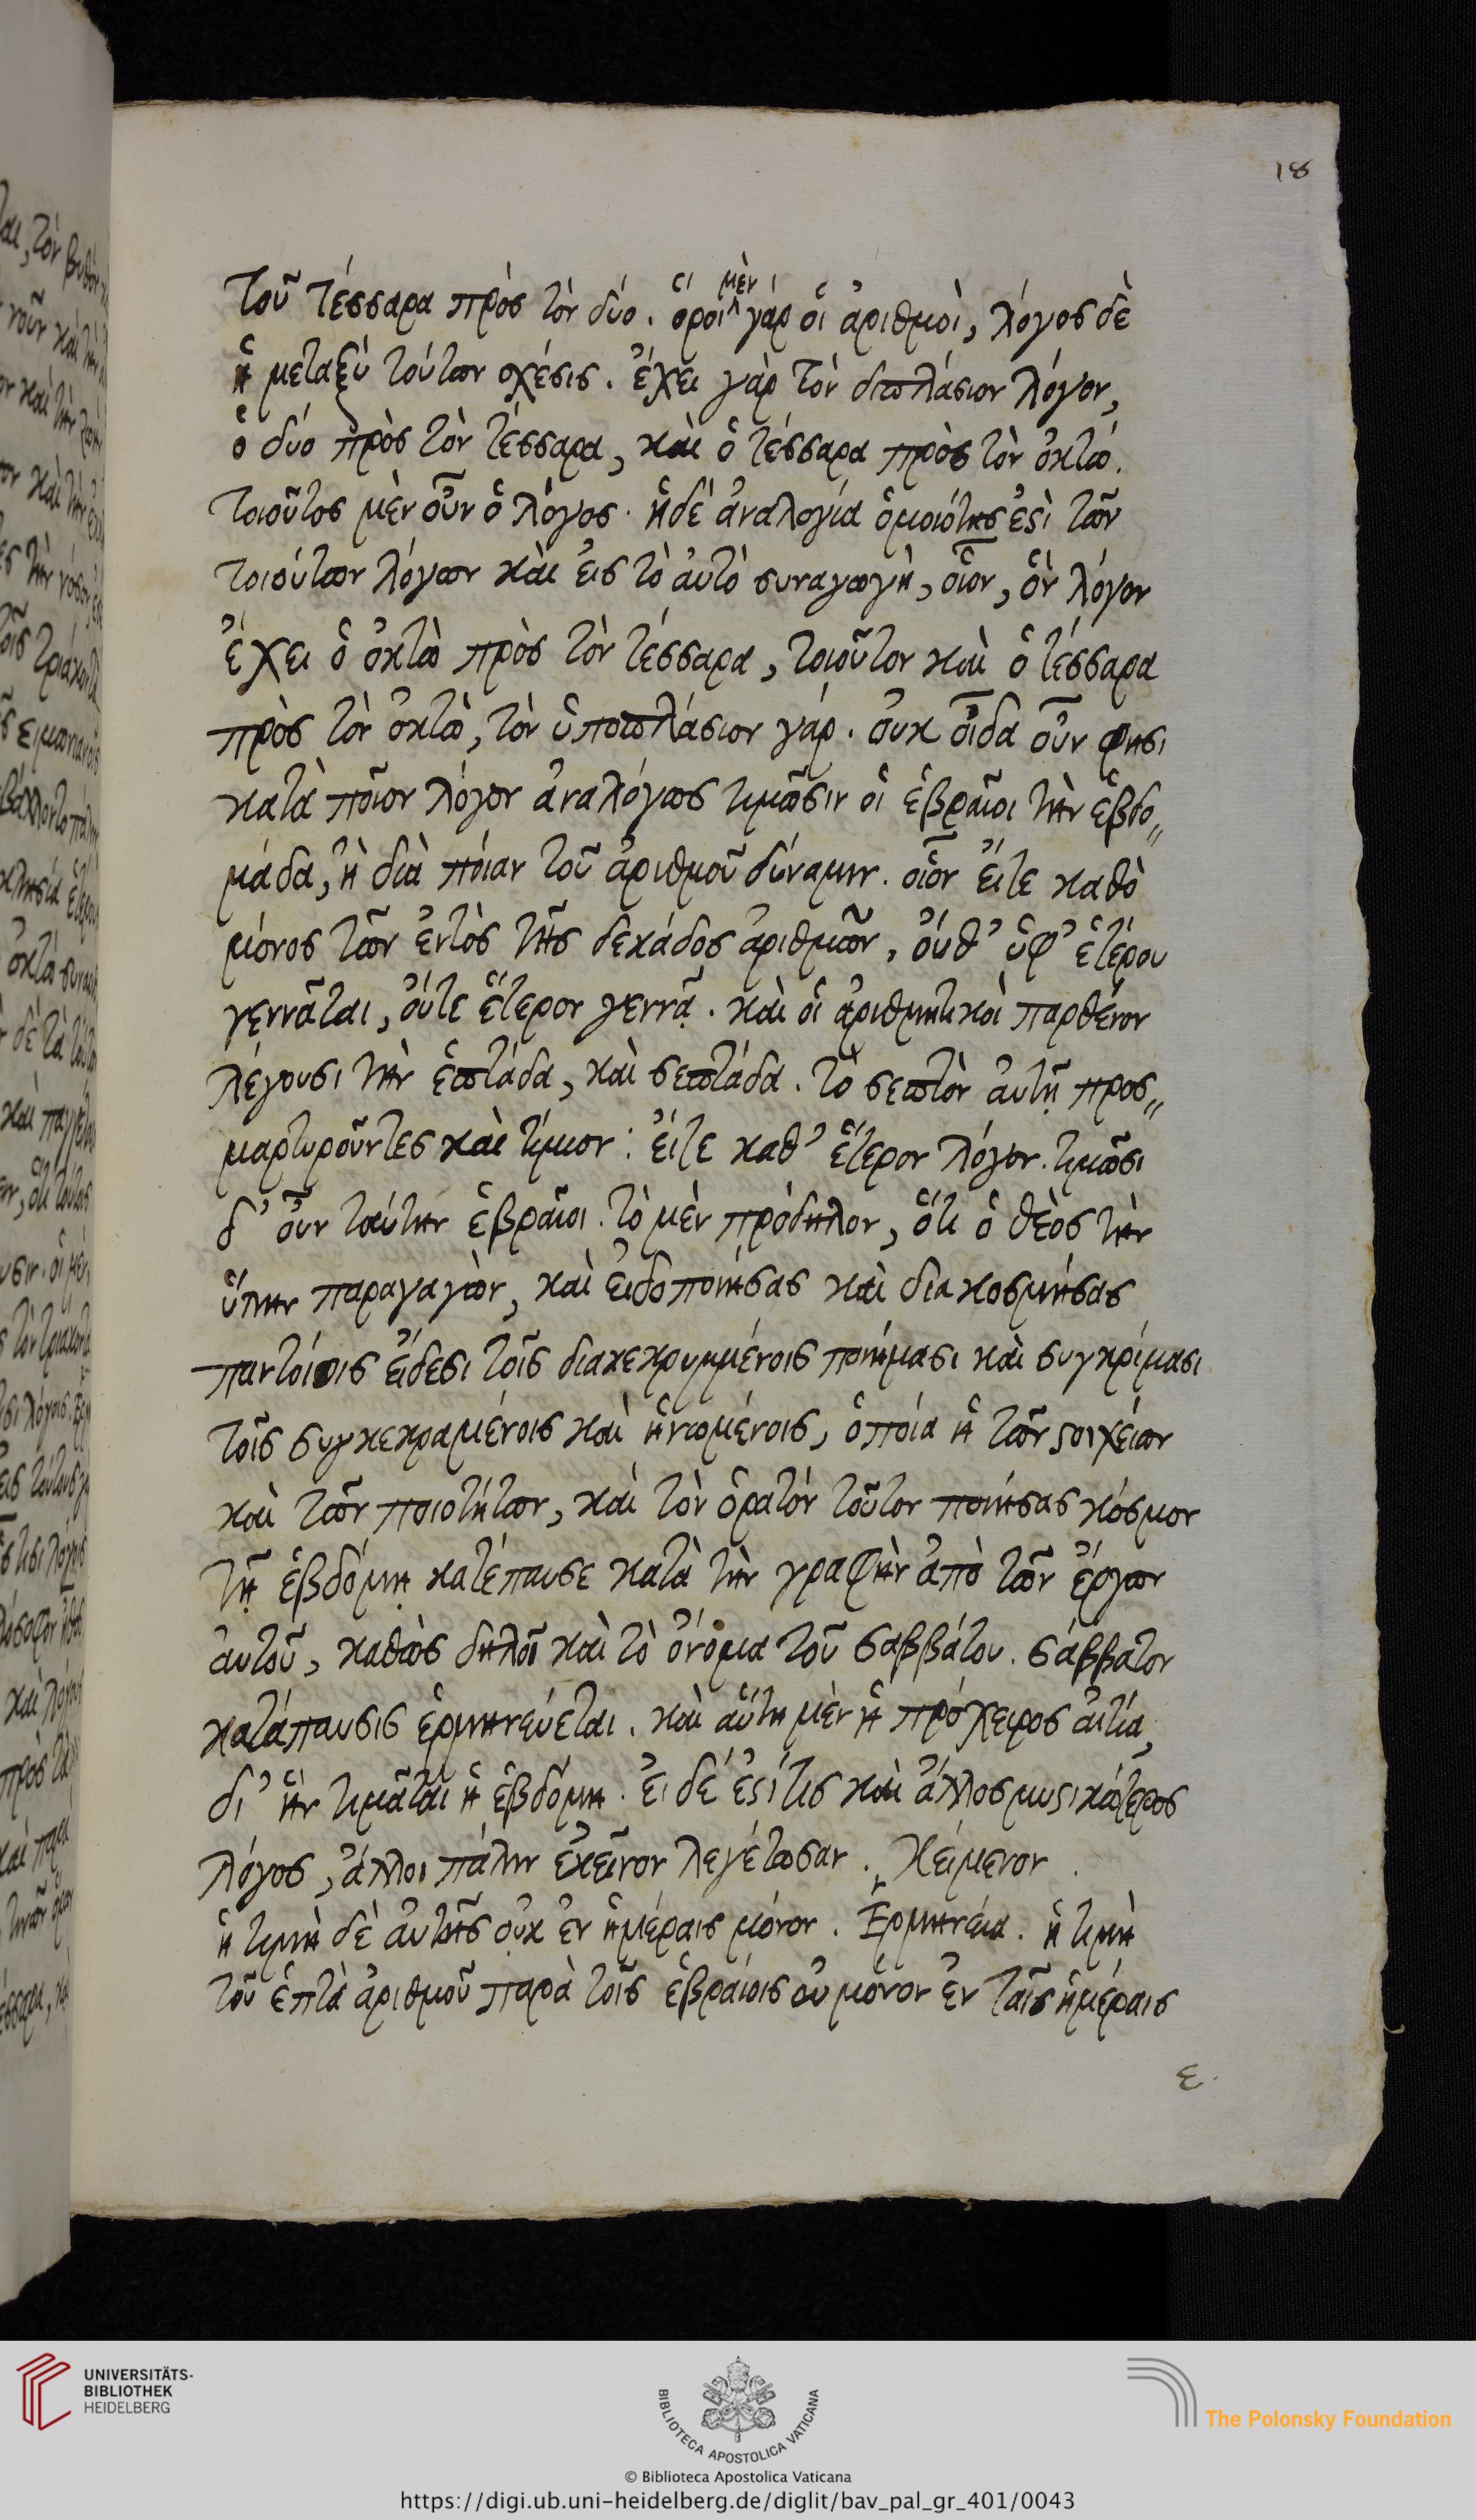 18
τοῦ τέσσαρα πρὸς τὸν δύο. ὅροι μὲν γάρ οἱ ἀριθμοὶ, λόγος δὲ
ἡ μεταξὺ τούτων σχέσις. ἔχει γὰρ τὸν διπλάσιον λόγον,
ὁ δύο πρὸς τὸν τέσσαρα, καὶ ὁ τέσσαρα πρὸς τὸν ὀκτώ.
τοιοῦτος μὲν οὖν ὁ λόγος. ἡ δὲ ἀναλογία ὁμοιότης ἐστὶ τῶν
τοιούτων λόγων καὶ εἰς τὸ αὐτὸ συναγωγὴ, οἷον, ὃν λόγον
ἔχει ὁ ὀκτὼ πρὸς τὸν τέσσαρα, τοιοῦτον καὶ ὁ τέσσαρα
πρὸς τὸν ὀκτὼ, τὸν ὑποπλάσιον γάρ. οὐκ οἶδα οὖν φησι
κατὰ ποῖον λόγον ἀναλόγως τιμῶσιν οἱ ἑβραῖοι τὴν ἑβδο„
μάδα, ἢ διὰ ποίαν τοῦ ἀριθμοῦ δύναμιν. οἷον εἴτε καθὸ
μόνος τῶν ἐντὸς τῆς δεκάδος ἀριθμῶν, οὔθ’ ὑφ’ ἑτέρου
γεννᾶται, οὔτε ἕτερον γεννᾷ. καὶ οἱ ἀριθμητικοὶ παρθένον
λέγουσι τὴν ἑπτάδα, καὶ σεπτάδα. τὸ σεπτὸν αὐτῇ προσ„
μαρτυροῦντες καὶ τίμιον: εἴτε καθ’ ἕτερον λόγον. τιμῶσι
δ’ οὖν ταύτην ἑβραῖοι. τὸ μὲν πρόδηλον, ὅτι ὁ θεὸς τὴν
ὕλην παραγαγὼν, καὶ εἰδοποιήσας καὶ διακοσμήσας
παντοίοις εἴδεσι τοῖς διακεκριμμένοις ποιήμασι καὶ συγκρίμασι
τοῖς συγκεκραμένοις καὶ ἡνωμένοις, ὁποία ἡ τῶν στοιχείων
καὶ τῶν ποιοτήτων, καὶ τὸν ὁρατόν τοῦτον ποιήσας κόσμον
τῇ ἑβδόμῃ κατέπαυσε κατὰ τὴν γραφὴν ἀπὸ τῶν ἔργων
αὐτοῦ, καθὼς δηλοῖ καὶ τὸ ὄνομα τοῦ σαββάτου. σάββατον
κατάπαυσις ἑρμηνεύεται. καὶ αὕτη μὲν ἡ πρόχειρος αἰτία,
δι’ ἣν τιμᾶται ἡ ἑβδόμη. εἰ δέ ἐστί τις καὶ ἄλλος μυστικώτερος
λόγος, ἄλλοι πάλιν ἐκεῖνον λεγέτωσαν. Κείμενον.
ἡ τιμὴ δὲ αὐτῆς οὐκ ἐν ἡμέραις μόνον. Ἑρμηνεία. ἡ τιμὴ
τοῦ ἑπτὰ ἀριθμοῦ παρὰ τοῖς ἑβραίοις οὐ μόνον ἐν ταῖς ἡμέραις
ε.
UNIVERSITÄTS-
BIBLIOTHEK
HEIDELBERG
BIBLIOTECA APOSTOLICA VATICANA
The Polonsky Foundation
© Biblioteca Apostolica Vaticana
https://digi.ub.uni-heidelberg.de/diglit/bav_pal_gr_401/0043